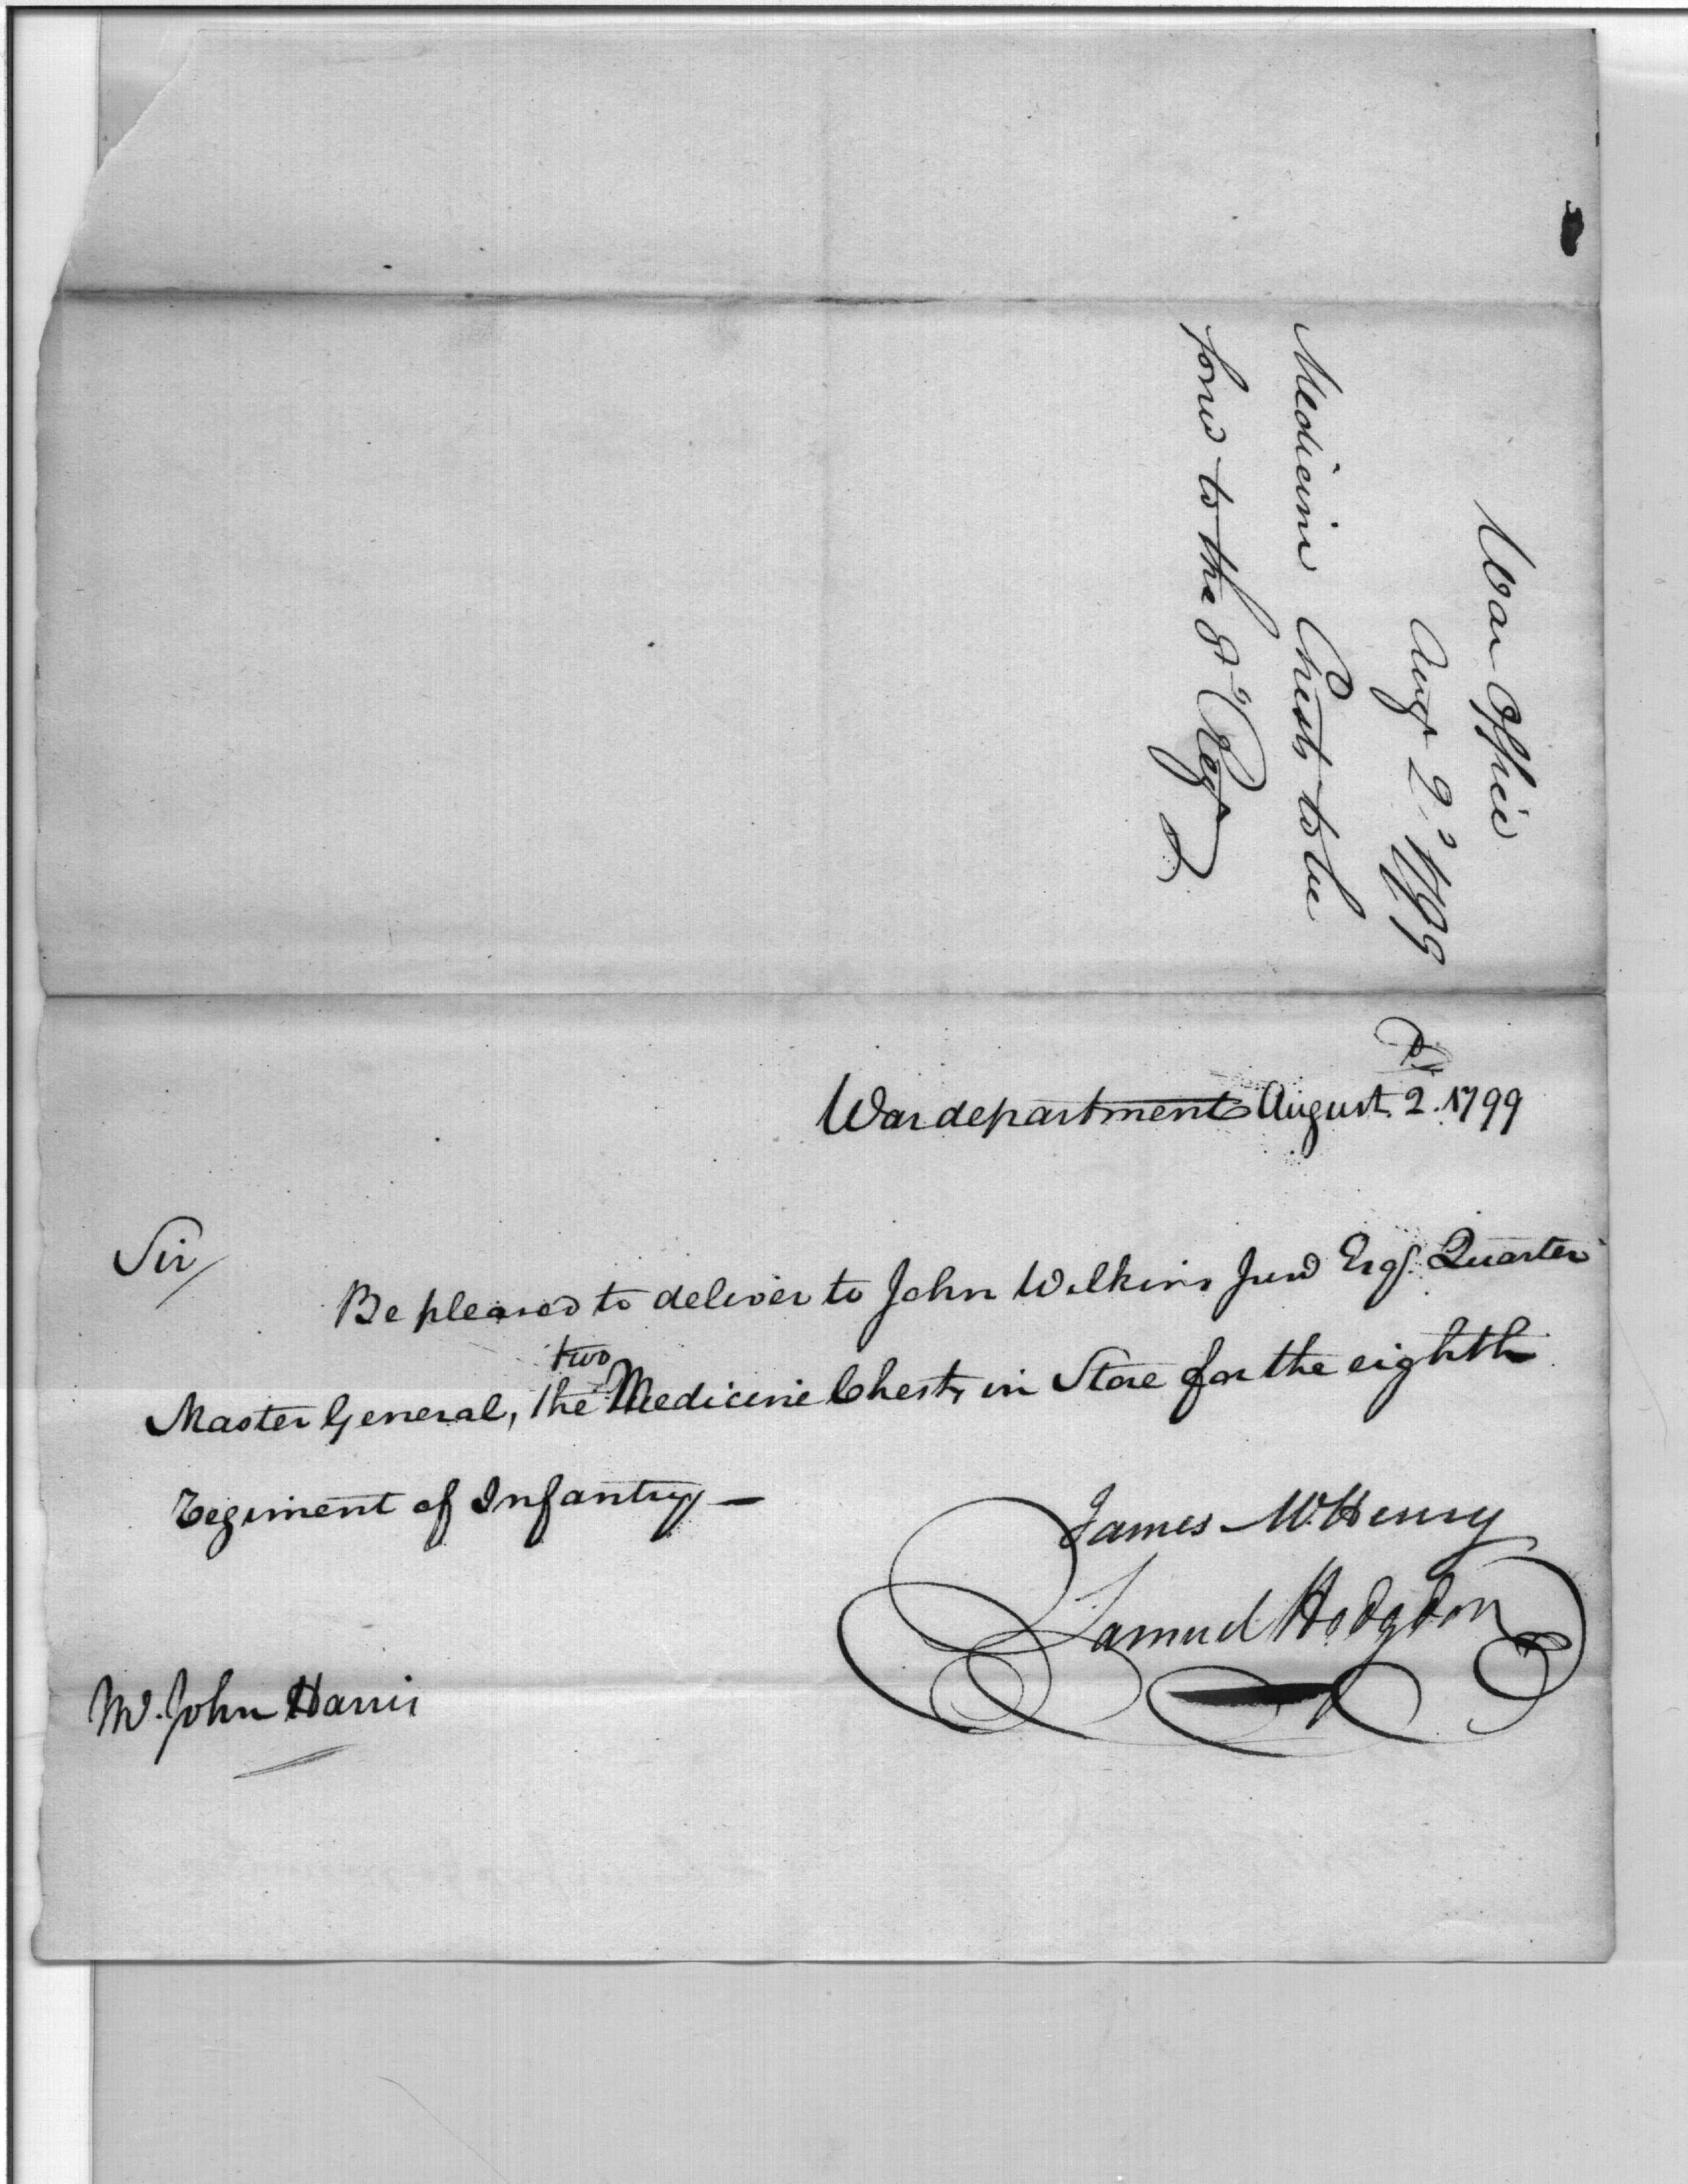 War Office
Augt 2d 1799
Medicine Chests to be
forwd to the 8th Regt
War department August. 2. 1799
Sir/
Be pleased to deliver to John Wilkins Junr Esqr. Quarter
two
Master General, the Medicine Chests, in Store for the eighth
Regiment of Infantry —
James McHenry
Samuel Hodgdon
Mr. John Harris